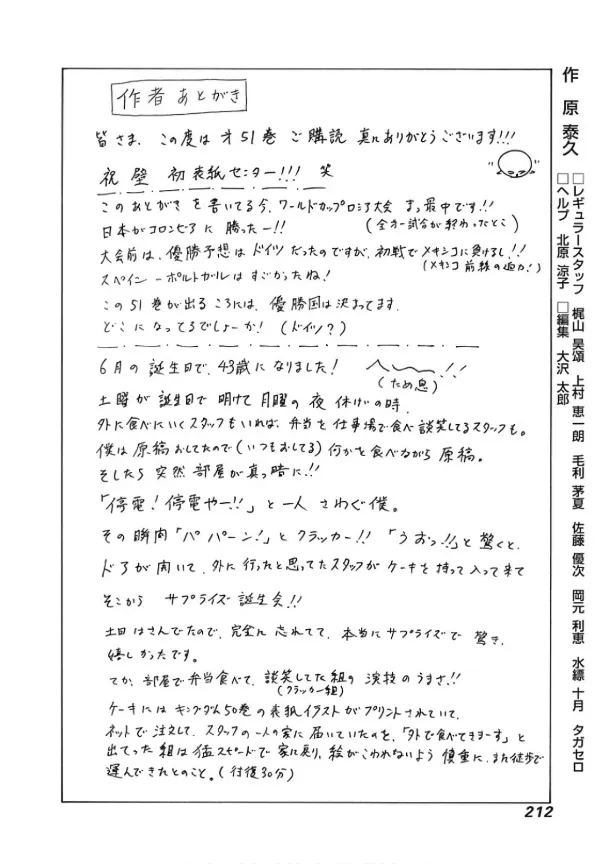 作者あとがき
皆さま、この度は才51巻 ご購読 真にありがとうございます!!!
祝 壁 初表紙センター!!! 笑
このあとがきを書いてる今、ワールドカップロシア大会 まっ最中です!!
日本がコロンビアに勝ったー!! (全才一試合が終わったとこ)
大会前は、優勝予想はドイツだったのですが、初戦でメキシコに負けるし!!
(メキシコ前線の迫力!)
スペイン-ポルトガルはすごかったね!
この51巻が出るころには、優勝国は決まってます。
どこになってるでしょーか! (ドイツ?)
6月の誕生日で、43歳になりました! へ〜〜!!
(ため息)
土曜が誕生日で 明けて月曜の夜 休けいの時、
外に食べにいくスタッフもいれば、弁当を仕事場で食べ談笑してるスタッフも。
僕は原稿おしてたので(いつもおしてる)何かを食べながら原稿。
そしたら突然部屋が真っ暗に!!
「停電!停電やー!!」と一人さわぐ僕。
その瞬間「パパーン!」とクラッカー!! 「うおっ!!」と驚くと、
ドアが開いて、外に行ったと思ってたスタッフがケーキを持って入って来て
そこから サプライズ誕生会!!
土日はさんでたので、完全に忘れてて、本当にサプライズで驚き、
嬉しかったです。
てか、部屋で弁当食べて、談笑してた組の演技のうまさ!!
(クラッカー組)
ケーキにはキングダム50巻の表紙イラストがプリントされていて、
ネットで注文して、スタッフの一人の家に届いていたのを、「外で食べてきまーす」と
出てった組は猛スピードで家に戻り、絵がこわれないよう慎重に、また徒歩で
運んできたとのこと。(往復30分)
作 原 泰久
□レギュラースタッフ 梶山 昊頌 上村 恵一朗 毛利 茅夏 佐藤 優次 岡元 利恵 水縹 十月 タガセロ
□ヘルプ 北原 涼子 □編集 大沢 太郎
212